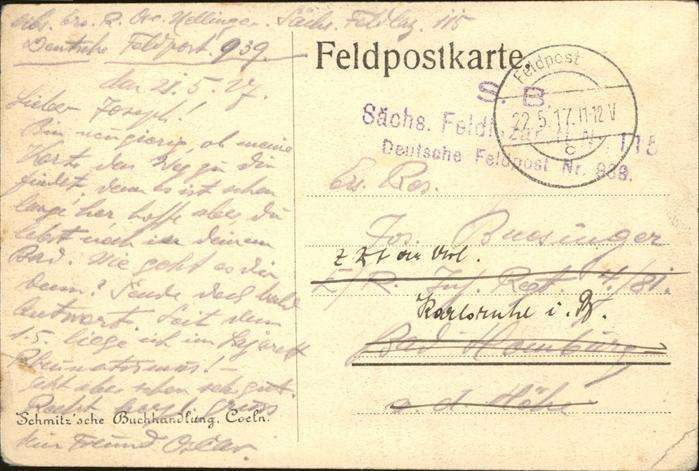 Abs. Ers. R. Osc. Mellinger. Sächs. Feldlaz. 115
Deutsche Feldpost. 939.
den 21.5.17
Lieber Joseph!
Bin neugierig ob meine
Karte den Weg zu dir
findet, denn es ist schon
lange her hoffe aber du
bist noch in deinem
Bad. Wie geht es dir
denn? Sende doch bald
Antwort. Seit dem
1.5. liege ich im Lazarett
Rheumatismus! –
Geht aber schon sehr gut.
Recht herzl. Gruss
dein Freund Oscar.
Schmitz'sche Buchhandlung. Coeln.
Feldpostkarte.
S. B.
Sächs. Feldlazarett Nr. 115
Deutsche Feldpost Nr. 939.
Feldpost
22.5.17.11-12V
c
Ers. Res.
Jos. Buesinger
z. Zt.
E/R. Inf. Regt. 4/81.
Karlsruhe i. B.
Bad Homburg
a. d. Höhe